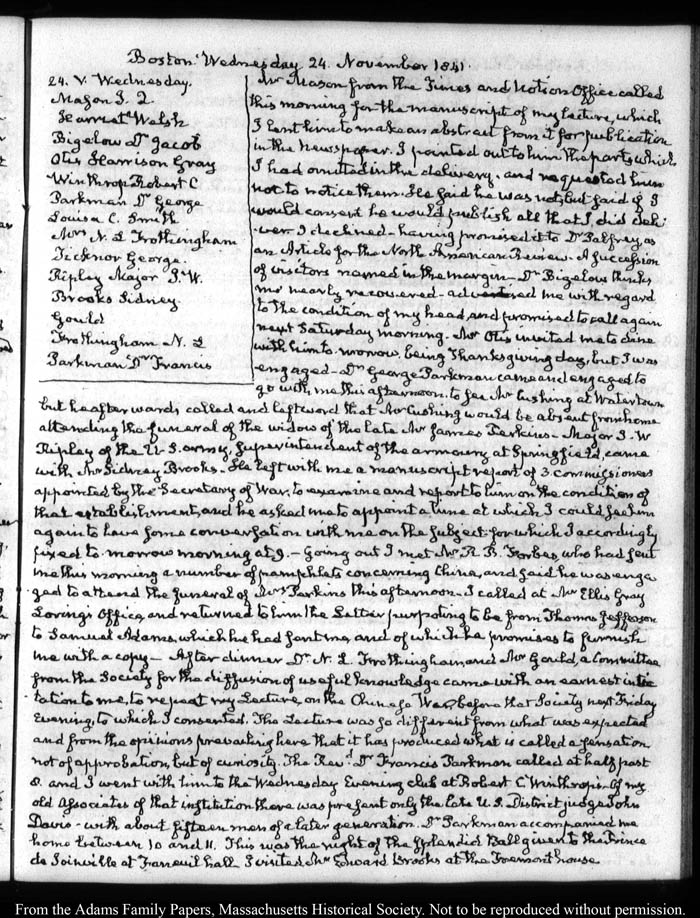 Boston Wednesday 24. November 1841.
24. V. Wednesday.
Mason I. 2.
Harriet Welsh
Bigelow Dr Jacob
Otis Harrison Gray
Winthrop Robert C
Parkman Dr George
Louisa C. Smith
Mrs N. L Frothingham
Ticknor George.
Ripley Major J. W.
Brooks Sidney.
Gould
Frothingham N. L
Parkman Dr Francis
Mr Mason from the Times and Notion Office called
this morning for the manuscript of my lecture, which
I lent him to make an abstract from it for publication
in the newspaper. I pointed out to him the parts which
I had omitted in the delivery, and requested him
not to notice them. He said he was not, but said if I
would consent he would publish all that I did deli-
ver. I declined - having promised it to Dr Palfrey as
an Article for the North American Review. A succession
of visitors named in the margin - Dr Bigelow thinks
me nearly recovered - advertised me with regard
to the condition of my head, and promised to call again
next Saturday morning. Mr Otis invited me to dine
with him to-morrow, being Thanksgiving day, but I was
engaged - Dr George Parkman came and engaged to
go with me this afternoon to see Mr Cushing at Watertown
but he afterwards called and left word that Mr Cushing would be absent from home
attending the funeral of the widow of the late Mr James Perkins - Major J. W
Ripley of the U. S. army, Superintendent of the armoury at Springfield, came
with Mr Sidney Brooks. He left with me a manuscript report of 3 commissioners
appointed by the Secretary of War, to examine and report to him on the condition of
that establishment, and he asked me to appoint a time at which I could see him
again to have some conversation with me on the subject for which I accordingly
fixed to morrow morning at 9. - Going out I met Mr R. B. Forbes who had sent
me this morning a number of pamphlets concerning China, and said he was enga-
ged to attend the funeral of Mrs Perkins this afternoon. I called at Mr Ellis Gray
Loring's Office, and returned to him the Letter purpoting to be from Thomas Jefferson
to Samuel Adams, which he had sent me, and of which he promises to furnish
me with a copy - After dinner Dr N. L Frothingham and Mr Gould, a Committee
from the Society for the diffusion of useful knowledge came with an earnest invi-
tation to me, to repeat my Lecture, on the Chinese War, before that Society next Friday
Evening, to which I consented. The Lecture was so different from what was expected
and from the opinions prevailing here that it has produced what is called a sensation
not of approbation, but of curiosity. The Revd Dr Francis Parkman called at half past
8. and I went with him to the Wednesday Evening club at Robert C. Winthrop's. Of my
old Associates of that institution there was present only the late U. S. District judge John
Davis - with about fifteen men of a later generation. Dr Parkman accompanied me
home between 10 and 11. This was the night of the splendid Ball given to the Prince
de Joinville at Faneuil hall. I visited Mrs Edward Brooks at the Tremont house
From the Adams Family Papers, Massachusetts Historical Society. Not to be reproduced without permission.